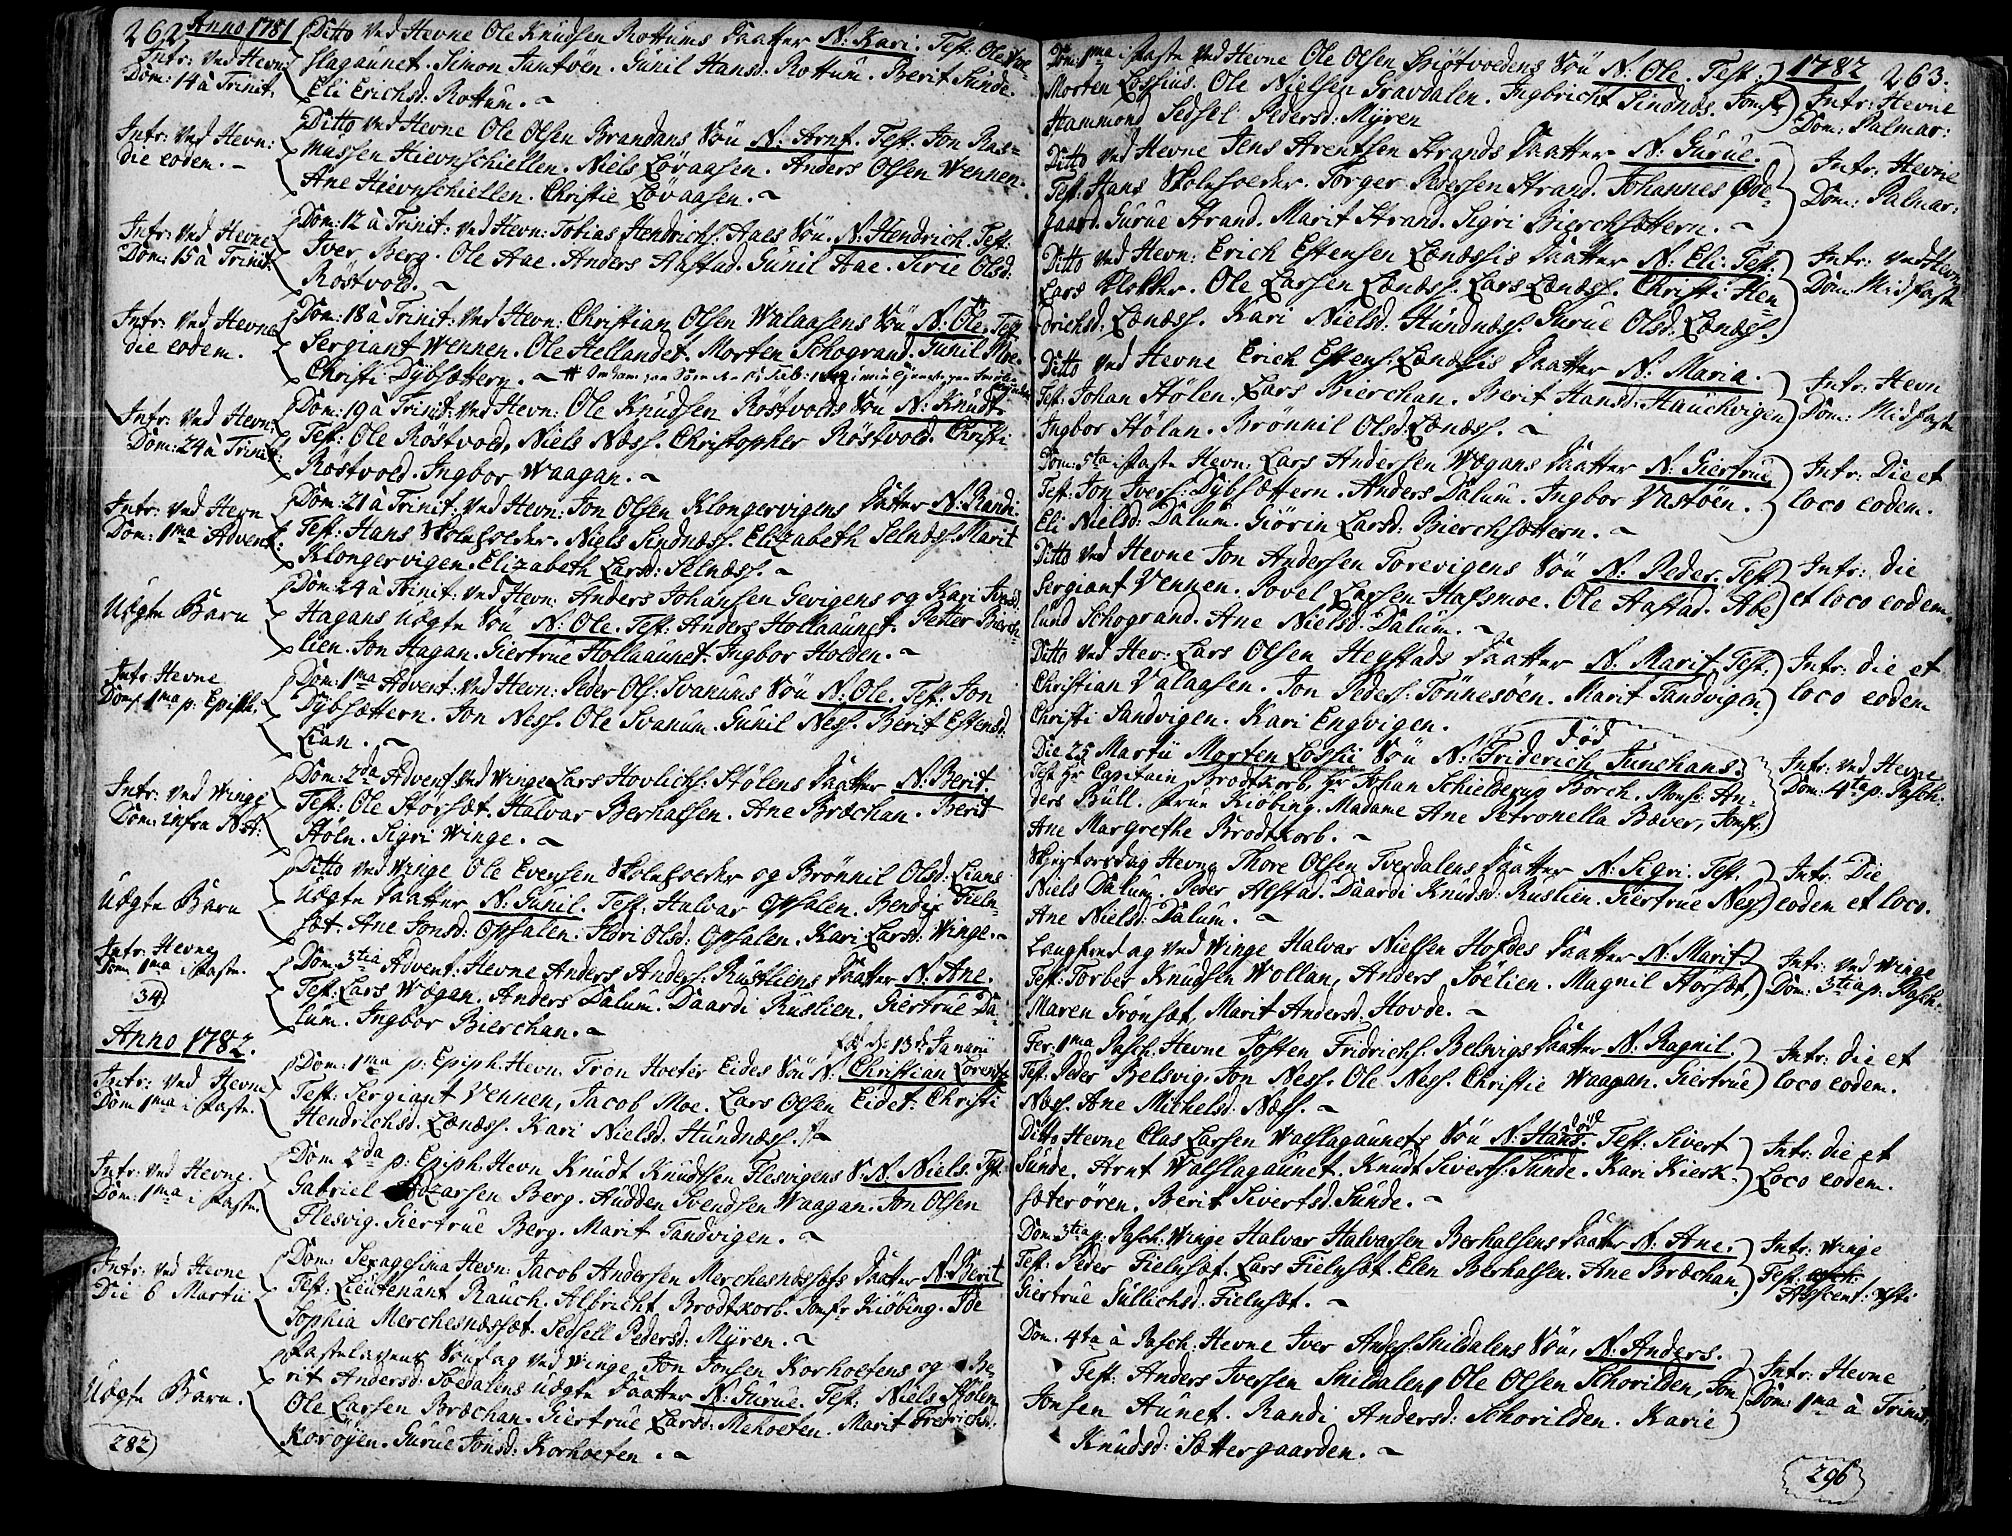 262. Anno 1781
Intr: ved Hevn:
Dom: 14 à Trinit.
Ditto ved Hevne Ole Knudsen Rottums Daatter N: Kari. Test: Ole
slagaunet. Simon Tamtøen. Gunil Hansd: Rottum. Berit Sunde.
Eli Erichsd: Rottum.
Intr: ved Hevn:
die eodem. -
Ditto ved Hevne Ole Olsen Brandans Søn N: Arnt. Test. Jon Ras=
mussen Hievnschiellen. Niels Løvaasen. Anders Olsen Wennen.
Ane Hievnschiellen. Christie Løvaasen.
Intr: ved Hevne
Dom: 15 à Trinit:
Dom: 12 à Trinit: ved Hevn: Tobias Hendrichs. Aaes Søn. N: Hendrich. Test:
Iver Berg. Ole Aae. Anders Aastad. Gunil Aae. Sirie Olsd:
Røstvold.
Intr: ved Hevne
die eodem.
Dom: 18 à Trinit: ved Hevn: Christian Olsen Walaasens Søn N: Ole. Test.
Sergiant Wennen. Ole Hellandet. Morten Schogrand. Gunil Moe.
Christi Dybsættern.
Intr: ved Hevn:
Dom: 24 à Trinit:
Dom: 19 à Trinit: ved Hevn: Ole Knudsen Røstvolds Søn N: Knudt.
Test: Ole Røstvold, Niels Næss. Christopher Røstvold. Christi
Røstvold. Ingbor Waagan.
Intr: ved Hevn
Dom: 1ma Advent:
Dom: 21 à Trinit: ved Hevn: Jon Olsen Klongervigens Datter N: Randi.
Test: Hans Skoleholder. Niels Sindnæss. Elizabeth Selnæss. Marit
Klongervigen. Elizabeth Larsd: Selnæss.
Uægte Barn
Dom: 24 à Trinit: ved Hevn: Anders Johansen Gevigens og Kari
Hagans uægte Søn N: Ole. Test: Anders Hollaaunet. Petter Bierch=
lien. Jon Hagan. Giertrue Hollaaunet. Ingbor Holden.
Intr: Hevne
Dom: 1ma p: Epiph:
Dom: 1ma Advent: ved Hevn: Peder Ols: Svanums Søn N: Ole. Test. Jon
Dybsættern. Jon Ness. Ole Svanum. Gunil Ness. Berit Estensd:
Lian.
Intr: ved Winge
Dom: infra Nat:
Dom: 2da Advent, ved Winge Lars Hovlichs: Stølens Daatter N: Berit.
Test: Ole Størsæt. Halvar Berhalsen. Ane Bræchan. Berit
Støln. Sigri Winge.
Uægte Barn
Ditto ved Winge Ole Evensen Skoleholder og Brønnil Olsd: Lians
Uægte Daatter N: Gunil. Test: Halvar Opsalen. Bendix Fieln=
sæt. Ane Jonsd: Opsalen. Kari Olsd: Opsalen. Kari Larsd: Winge.
Intr: Hevne
Dom: 1ma i Faste.
34
Dom: 3tia Advent: Hevne Anders Anders: Rustliens Daatter N: Ane.
Test: Lars Wægan. Anders Dalum. Daardi Ruslien. Giertrue Da=
lum. Ingbor Bierchan.
Anno 1782.
Intr: ved Hevne
Dom 1ma i Faste.
d: 13de Januarii
Dom: 1ma p: Epiph. Hevn. Tron Hoeter Eides Søn N: Christian Lorentz
Test: Sergiant Vennen, Jacob Moe. Lars Olsen Eidet: Christi
Hendrichsd. Lænæss. Kari Nielsd. Hundnæss.
Intr: ved Hevne.
Dom: 1ma i Faste.
Dom 2da p: Epiph. Hevn Knudt Knudtsen Flesvigens S. N. Niels. Test.
Gabriel Larsen Berg. Audden Svendsen Waagan. Jon Olsen
Flesvig. Giertrue Berg. Marit Tandvigen.
Intr: ved Hevne
Die 6 Martii
Dom: Sexagesima Hevn: Jacob Andersen Merchesnæssets Datter N. Berit
Test: Lieutenant Rauch. Albricht Brodtkorb. Jomfr Kiøbing. Ide
Sophia Merchesnæsset. Sedsell Pedersd: Myren.
Uægte Barn.
Fastelavens Søndag ved Winge Jon Jonsen Korhoetens og Be
rit Andersd: Soedalens uægte Daatter N. Gurue. Test: Niels Støl.
Ole Larsen Bræchan. Giertrue Larsd: Mehoeten. Marit Fredrichsd.
Korøyen. Gurue Jonsd: Korhoeten.
282
1782 263.
Dom: 1ma i Faste ved Hevne Ole Olsen Griøtvoldens Søn N. Ole. Test:
Morten Lossius. Ole Nielsen Gravdalen. Ingbricht Sindnæs. Jomfr
Hammond Sedsel Pedersd: Myren
Intr: Hevne
Dom: Palmar:
Ditto ved Hevne Jens Arentsen Strands Daatter N. Gurue.
Test: Hans Skoleholder. Torger Pedersen Strand. Johannes Øde=
gaard. Gurue Strand. Marit Strand. Sigri Bierchsættern.
Intr: Hevne
Dom: Palmar:
Ditto ved Hevn: Erich Estensen Lænæssis Daatter N. Eli: Test:
Lars Klokker. Ole Larsen Lænæss. Lars Lænæss. Christi Hen
drichsd: Lænæss. Kari Nielsd: Hundnæss. Gurue Olsd: Lænæss.
Intr: ved Hevn
Dom: Midfaste
Ditto ved Hevne Erich Estens: Lænæssis Daatter N: Maria.
Test: Johan Hølen. Lars Bierchan. Berit Hansd: Hauchvigen
Ingbor Stølan. Brønnil Olsd: Lænæss.
Intr: Hevn
Dom: Midfaste
Dom: 5ta i Faste Hevn: Lars Andersen Wægans Daatter N. Giertrue
Test: Jon Ivers: Dybsættern. Anders Dalum. Ingbor Vastøen.
Eli Nielsd: Dalum. Giørin Larsd: Bierchsættern.
Intr: Die et
loco eodem.
Ditto ved Hevne Jon Andersen Torevigens Søn N. Peder. Test
Sergiant Vennen. Povel Larsen Hafsmoe. Ole Aastad. Abe
lund Schogrand. Ane Nielsd: Dalum.
Intr: die
et loco eodem.
Ditto ved Hev: Lars Olsen Hegstads Daatter N. Marit. Test:
Christian Valaasen. Jon Peders: Tønnesøen. Marit Tandvigen.
Christi Sandvigen. Kari Engvigen.
Intr: die et
loco eodem
død
Die 25 Martii Morten Lossii Søn N: Friderich Junchans.
Test Hr Capitain Brodtkorb, Hr Johan Schielderup Borch. Mons: An=
ders Bull. Frue Kiøbing. Madame Ane Petronella Bæver, Jomfr.
Ane Margrethe Brodtkorb.
Intr: ved Hevne
Dom: 4ta p: Pasch:
Skjertorsdag Hevne Thore Olsen Tverdalens Daatter N. Sigri. Test.
Niels Dalum. Peder Alstad. Daardi Knudsd: Ruslien. Giertrue Ness.
Ane Nielsd: Dalum.
Intr: Die
eodem et loco.
Langfredag ved Winge Halvar Nielsen Hofdes Daatter N. Marit.
Test: Torber Knudsen Wollan, Anders Soelien. Magnil Hørsæt.
Maren Grønsæt. Marit Andersd: Hovde.
Intr: ved Winge
Dom: 3tia p: Pasch:
Fer: 1ma Pasch: Hevne Jøsten Fridrichs: Belsvigs Daatter N. Ragnil.
Test: Peder Belsvig. Jon Ness. Ole Ness. Christie Waagan. Giertrue
Næss. Ane Michelsd: Næss.
Intr: die et
loco eodem.
død
Ditto Hevne Clas Larsen Waslagaunets Søn N. Hans. Test: Sivert
Sunde. Arnt Waslagaunet. Knudt Siverts: Sunde. Kari Kierk=
sæterøren. Berit Sivertsd: Sunde.
Intr: die et
Loco eodem.
Dom 3tia p: Pasch: Winge Halvar Halvarsen Berhalsens Daatter N. Ane.
Test: Peder Fielnsæt. Lars Fielnsæt. Elen Berhalsen. Ane Bræchan.
Giertrue Gullichsd: Fielnsæt.
Intr: Winge
Fest:
Ascent: Xsti
Dom: 4ta à Pasch: Hevne Iver Anders: Snildalens Søn. N: Anders.
Test: Anders Iversen Snildalen, Ole Olsen Schorilden, Jon
Jonsen Aunet. Randi Andersd: Schorilden. Karie
Knudsd: Sættergaarden.
Intr: Hevne
Dom: 1ma à Trinit:
296